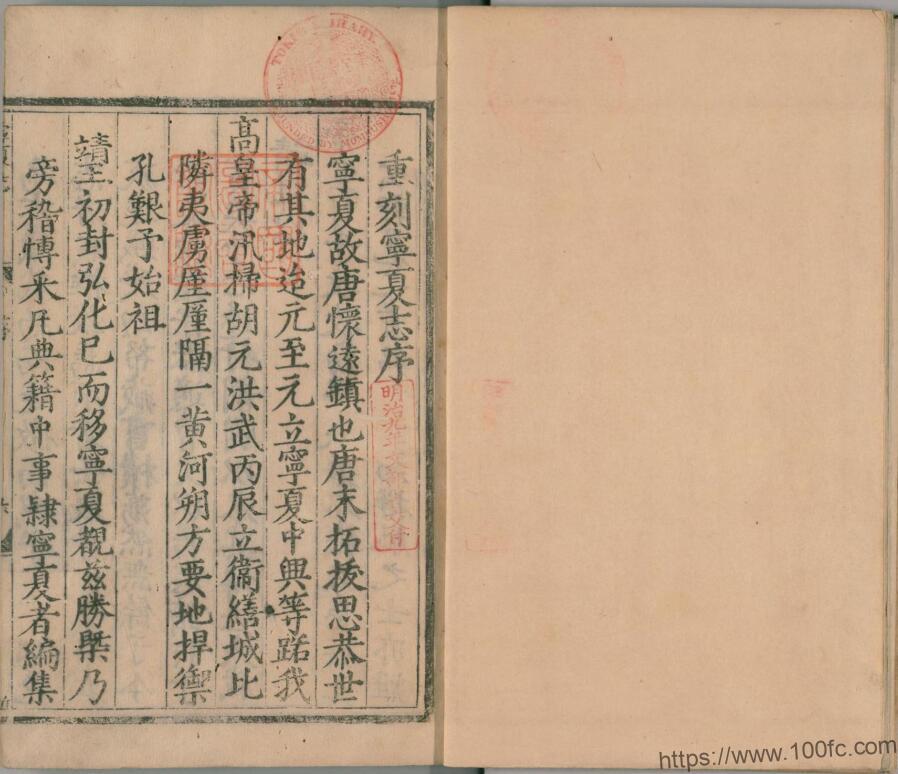 重刻寧夏志序
寧夏故唐懷遠鎮也唐末拓拔思恭世
有其地迨元至元立寧夏中興等路我
高皇帝汛掃胡元洪武丙辰立衛繕城比
隣夷虜厪厪隔一黄河朔方要地捍禦
孔艱予始祖
靖王初封弘化已而移寧夏覩茲勝槩乃
旁稽愽采凡典籍中事隸寧夏者編集
TOKIO LIBRARY
FOUNDED BY MOMBUSHO
明治九年文部省交付
https://www.100fc.com